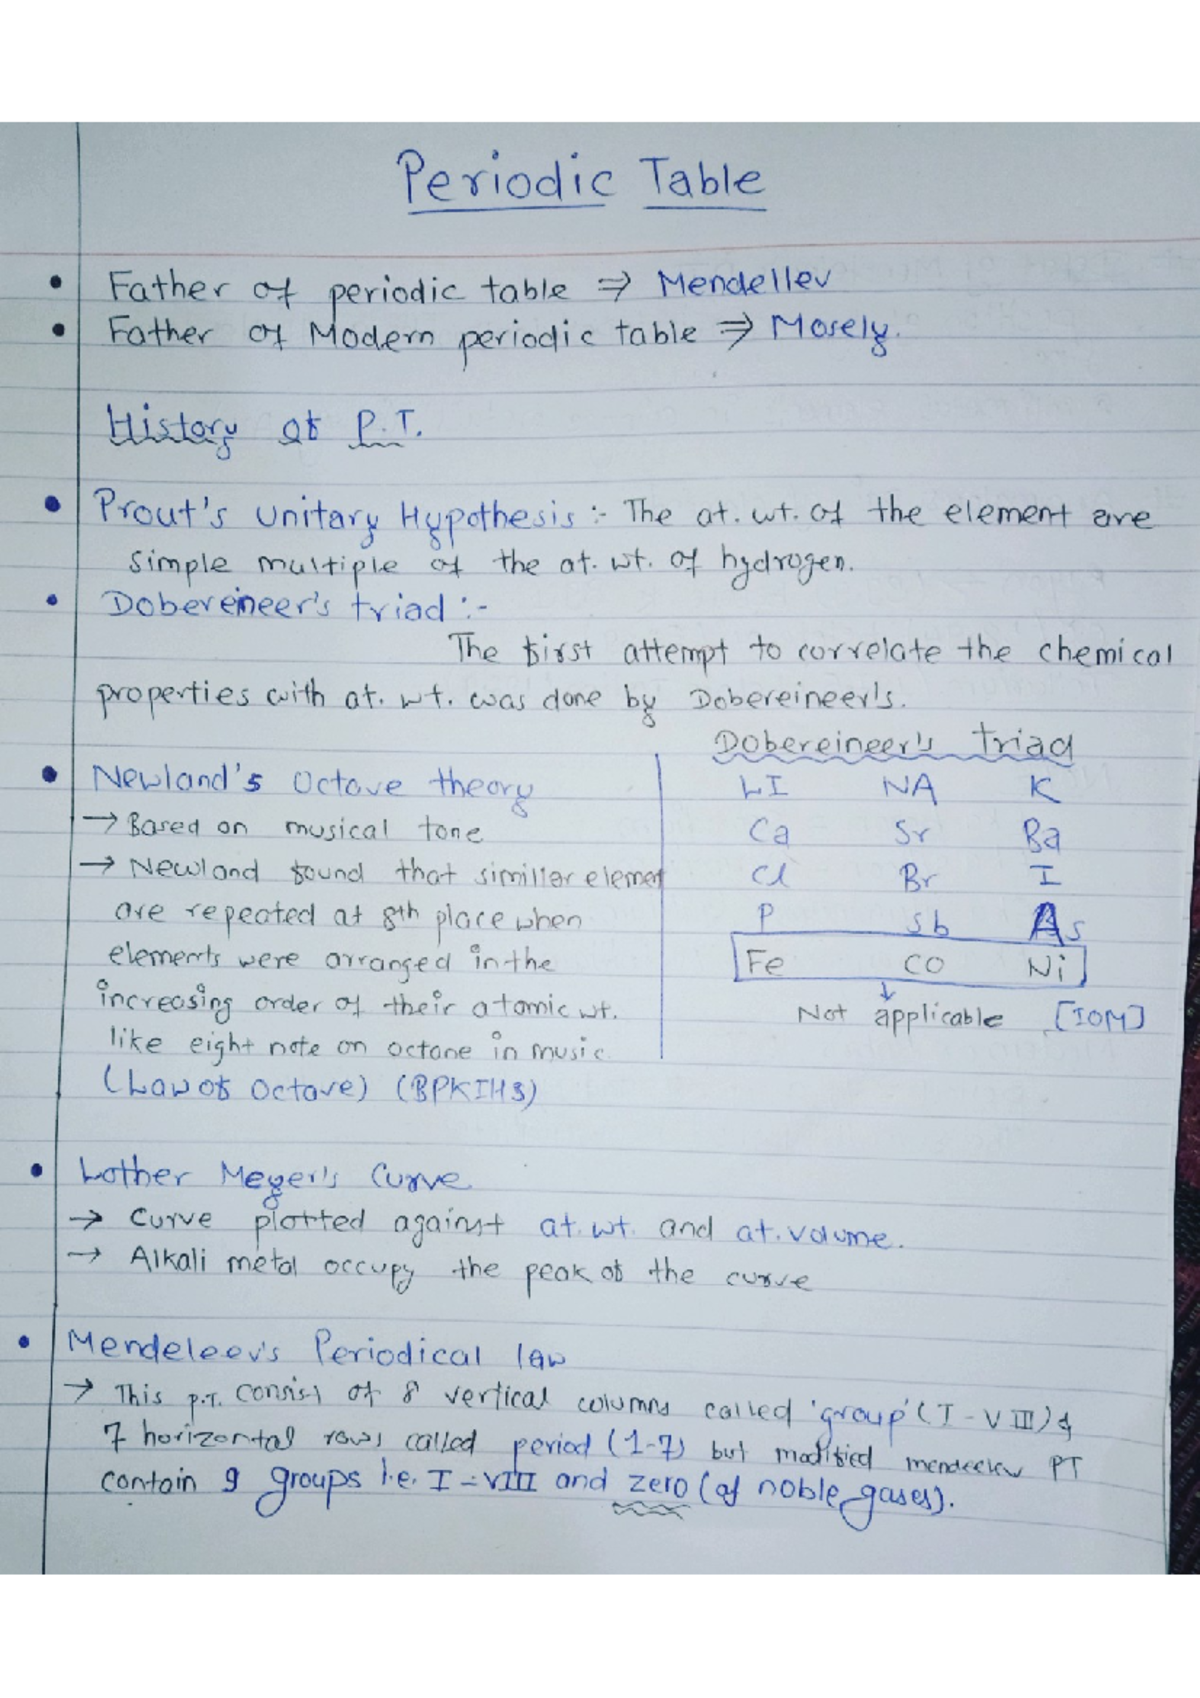 Periodic Table
• Father of periodic table ⇒ Mendellev
• Father of Modern periodic table ⇒ Mosely.
History of P.T.
• Prout's Unitary Hypothesis :- The at. wt. of the element are
simple multiple of the at. wt. of hydrogen.
• Dobereineer's triad :-
The first attempt to correlate the chemical
properties with at. wt. was done by Dobereineer's.
• Newland's Octave theory
→ Based on musical tone
→ Newland found that similar element
are repeated at 8th place when
elements were arranged in the
increasing order of their atomic wt.
like eight note on octane in music
(Law of Octave) (BPKIHS)
Dobereineer's Triad
LI NA K
Ca Sr Ba
Cl Br I
P Sb As
Fe CO Ni
↓
Not applicable [IOM]
• Lother Meyer's Curve
→ Curve plotted against at. wt. and at. volume.
→ Alkali metal occupy the peak of the curve
• Mendeleev's Periodical law
→ This P.T. consist of 8 vertical columns called 'group' (I - VIII) &
7 horizontal rows called period (1-7) but modified mendeelev PT
contain 9 groups i.e. I - VIII and zero (of noble gases).